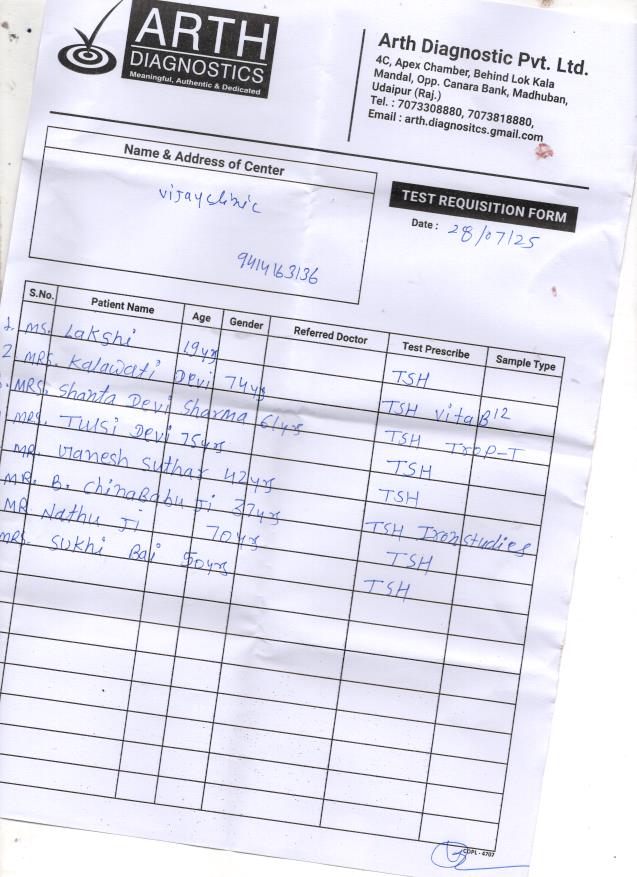 ARTH
DIAGNOSTICS
Meaningful, Authentic & Dedicated
Arth Diagnostic Pvt. Ltd.
4C, Apex Chamber, Behind Lok Kala
Mandal, Opp. Canara Bank, Madhuban,
Udaipur (Raj.)
Tel. : 7073308880, 7073818880,
Email : arth.diagnositcs.gmail.com
Name & Address of Center
vijay clinic
9414163136
TEST REQUISITION FORM
Date : 28/07/25
S.No. Patient Name Age Gender Referred Doctor Test Prescribe Sample Type
1. MS. Lakshi 19yrs TSH
2 MRS. Kalawati Devi 74yrs TSH vita B12
MRS. Shanta Devi Sharma 61yrs TSH TROP-T
MRS. Tulsi Devi 75yrs TSH
MR. Suthar 42yrs TSH
MR. B. ChinaBabu Ji 37yrs TSH Iron studies
MR Nathu Ji 70yrs TSH
MRS. Sukhi Bai 50yrs TSH
CDPL - 4707